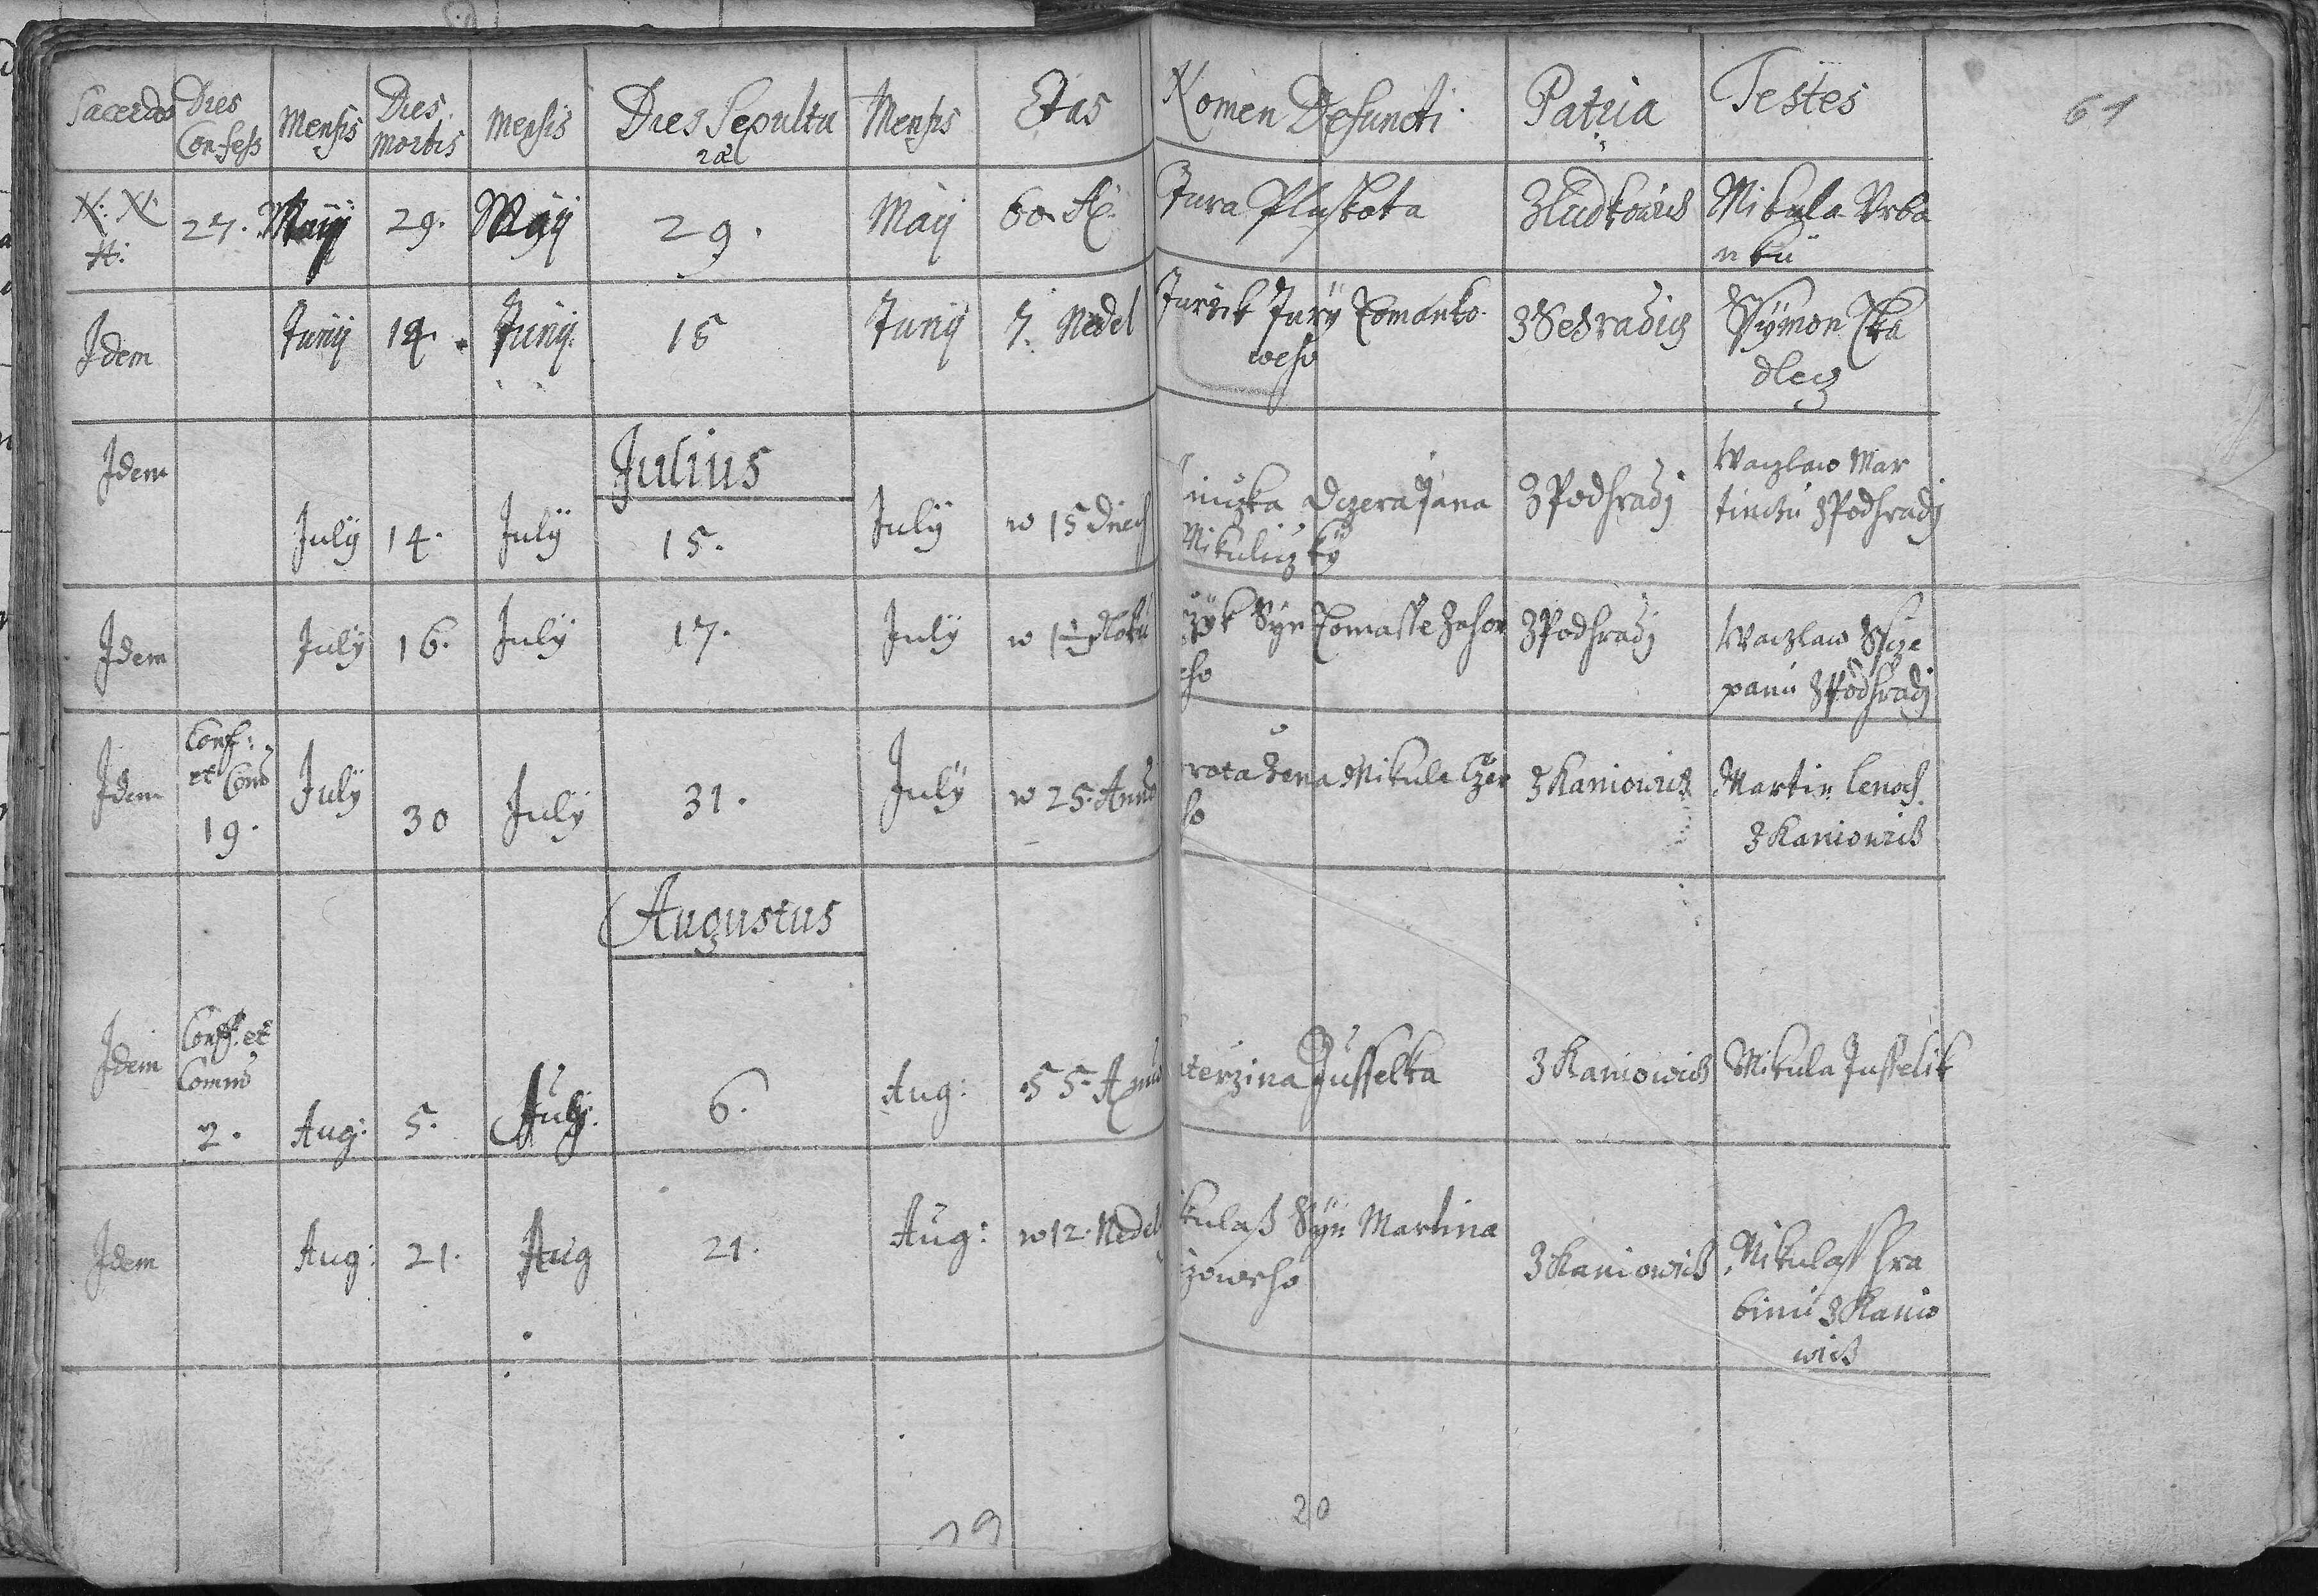 Sacerdos Dies Confess Mensis Dies Mortis Mensis Dies Sepulturæ Mensis Etas Nomen Defuncti Patria Testes
61
N: N: 27. Maij 29. Maij 29. Maij 60 Jura Pluskota Zludkowicz Mikula Vrba
nku
Idem Junij 14. Junij 15 Junij 7. Nedel Jurick Jury Tomanko
weho
ZSehradicz Symon Tka
dlecz
Julius
Idem July 14. July 15. July w 15 dnech dczera Jana
Mikuliczky
ZPodhradj Waczlaw Mar
tinku ZPodhradj
Idem July 16. July 17. July w 1 Roku Syn Tomasse Zahor
eho
ZPodhradj Waczlaw Sscze
panu ZPodhradj
Idem Conf: et Com 19. July 30 July 31. July w 25. Anno rota Zena Mikule
ho
ZKaniowicz Martin Lenoch
ZKaniowicz
Augustus
Idem Conf. et Comm 2. Aug: 5. 6. Aug: 55. Anno terzina Jusselka ZKaniowicz Mikula Jusselik
Idem Aug: 21. Aug 21. Aug: w 12. Nedel kulaß Syn Martina
zoweho
ZKaniowicz Mikulass Hra
binu ZKanio
wicz
19
20